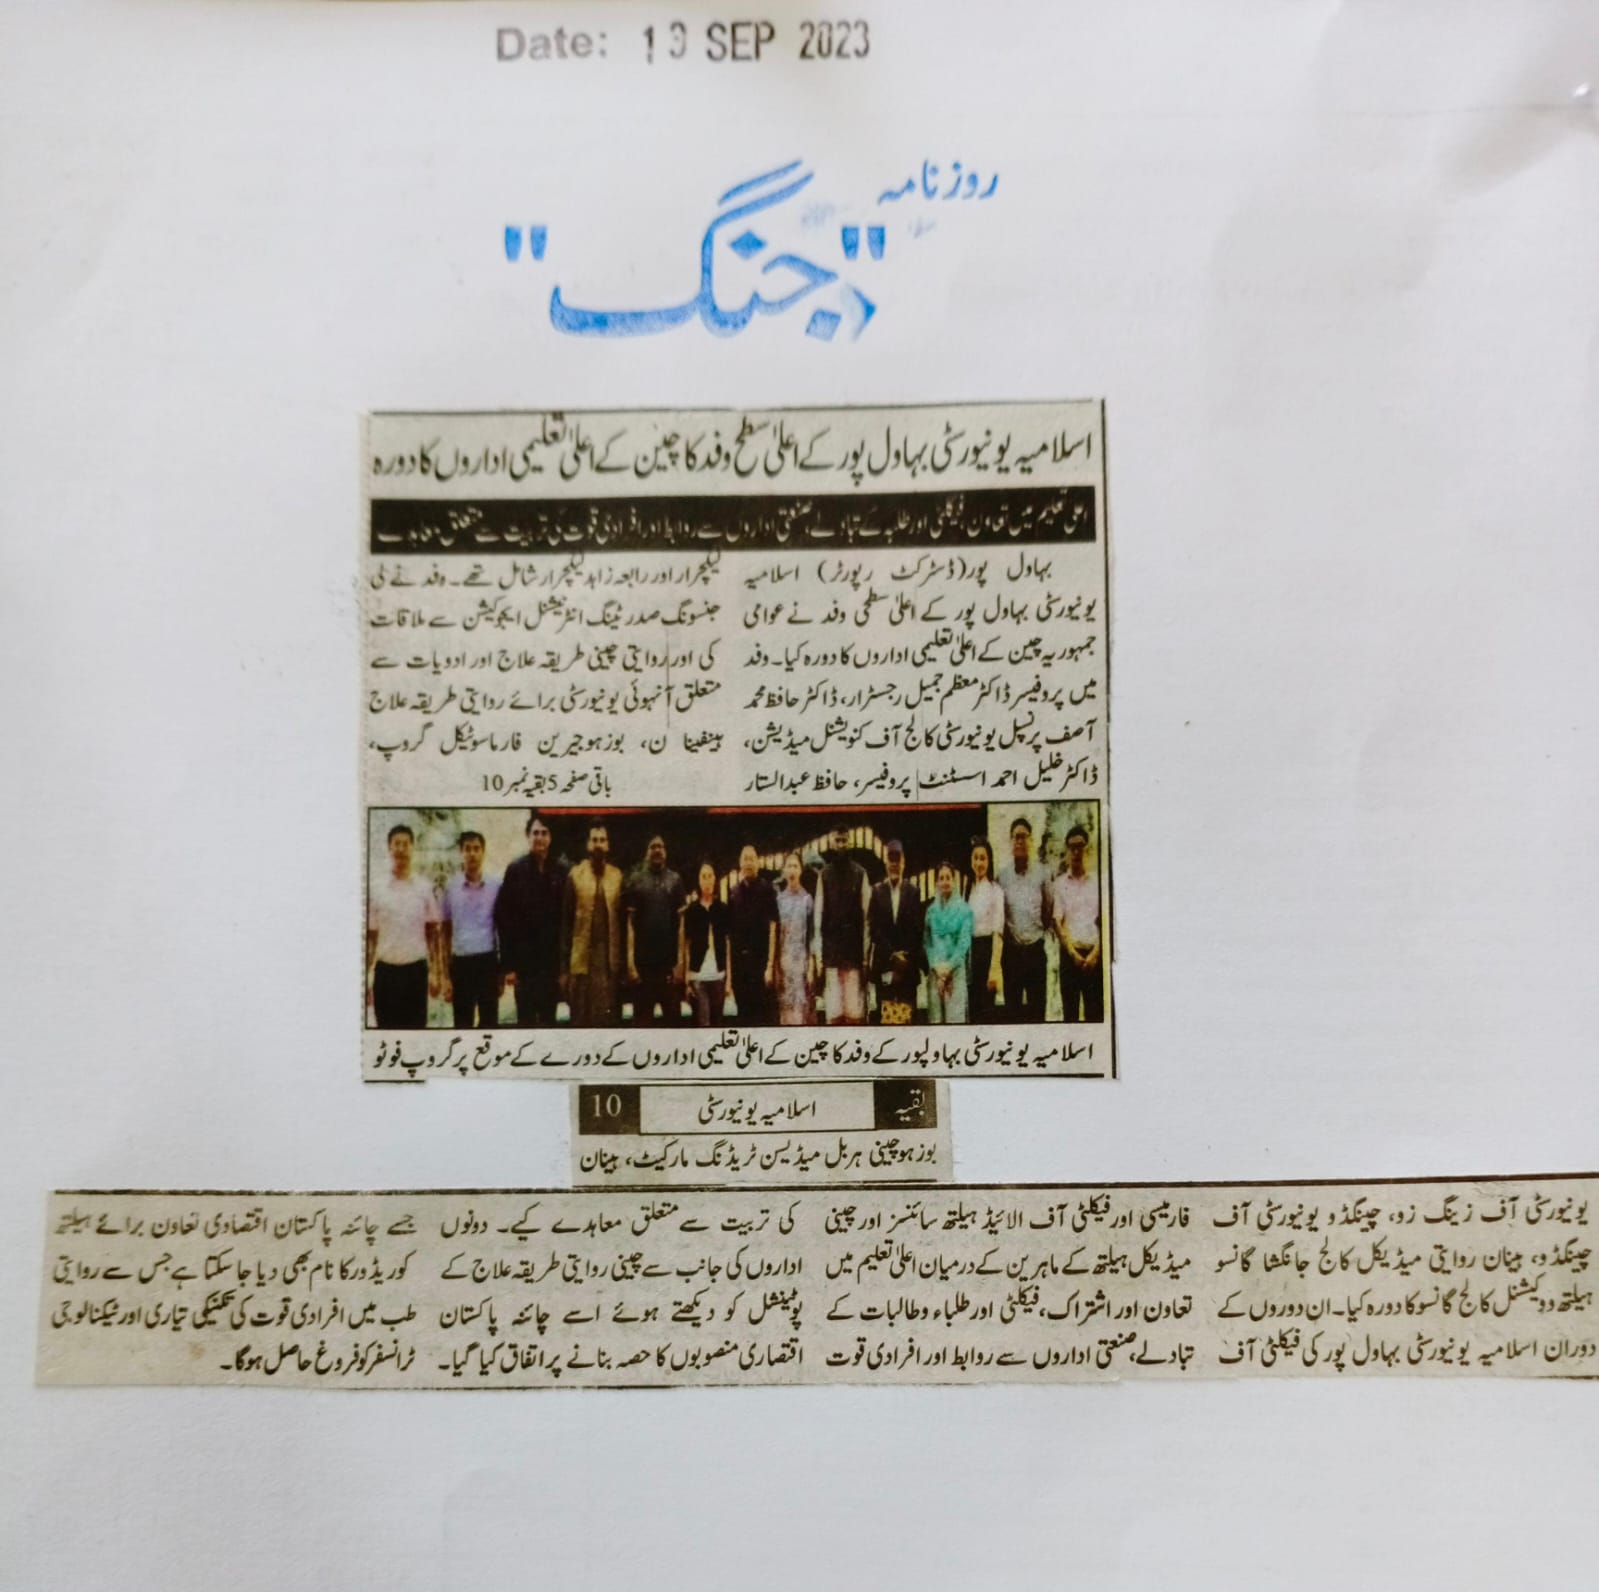 Date: 13 SEP 2023
روزنامہ
"جنگ"
اسلامیہ یونیورسٹی بہاول پور کے اعلیٰ سطح وفد کا چین کے اعلیٰ تعلیمی اداروں کا دورہ
اعلیٰ تعلیم میں تعاون، فیکلٹی اور طلبہ کے تبادلے، صنعتی اداروں سے روابط اور افرادی قوت کی تربیت سے متعلق معاہدے
بہاول پور (ڈسٹرکٹ رپورٹر) اسلامیہ
یونیورسٹی بہاول پور کے اعلیٰ سطحی وفد نے عوامی
جمہوریہ چین کے اعلیٰ تعلیمی اداروں کا دورہ کیا۔ وفد
میں پروفیسر ڈاکٹر معظم جمیل رجسٹرار، ڈاکٹر حافظ محمد
آصف پرنسپل یونیورسٹی کالج آف کنویشنل میڈیشن،
ڈاکٹر خلیل احمد اسسٹنٹ پروفیسر، حافظ عبدالستار
لیکچرار اور رابعہ زاہد لیکچرار شامل تھے۔ وفد نے لی
جنسونگ صدر ٹینگ انٹرنیشنل ایجوکیشن سے ملاقات
کی اور روایتی چینی طریقہ علاج اور ادویات سے
متعلق آنہوئی یونیورسٹی برائے روایتی طریقہ علاج
بوزہوجیرین فارماسوٹیکل گروپ،
باقی صفحہ 5 بقیہ نمبر 10
اسلامیہ یونیورسٹی بہاولپور کے وفد کا چین کے اعلیٰ تعلیمی اداروں کے دورے کے موقع پر گروپ فوٹو
بقیہ اسلامیہ یونیورسٹی 10
بوزہو چینی ہربل میڈیسن ٹریڈنگ مارکیٹ، ہینان
یونیورسٹی آف زینگ زو، چینگڈو یونیورسٹی آف
چینگڈو، ہینان روایتی میڈیکل کالج جانگشا گانسو
ہیلتھ ووکیشنل کالج گانسو کا دورہ کیا۔ ان دوروں کے
دوران اسلامیہ یونیورسٹی بہاول پور کی فیکلٹی آف
فارمیسی اور فیکلٹی آف الائیڈ ہیلتھ سائنسز اور چینی
میڈیکل ہیلتھ کے ماہرین کے درمیان اعلیٰ تعلیم میں
تعاون اور اشتراک، فیکلٹی اور طلباء وطالبات کے
تبادلے، صنعتی اداروں سے روابط اور افرادی قوت
کی تربیت سے متعلق معاہدے کیے۔ دونوں
اداروں کی جانب سے چینی روایتی طریقہ علاج کے
پوٹینشل کو دیکھتے ہوئے اسے چائنہ پاکستان
اقتصاری منصوبوں کا حصہ بنانے پر اتفاق کیا گیا۔
جسے چائنہ پاکستان اقتصادی تعاون برائے ہیلتھ
کوریڈور کا نام بھی دیا جا سکتا ہے جس سے روایتی
طب میں افرادی قوت کی تکنیکی تیاری اور ٹیکنالوجی
ٹرانسفر کو فروغ حاصل ہوگا۔